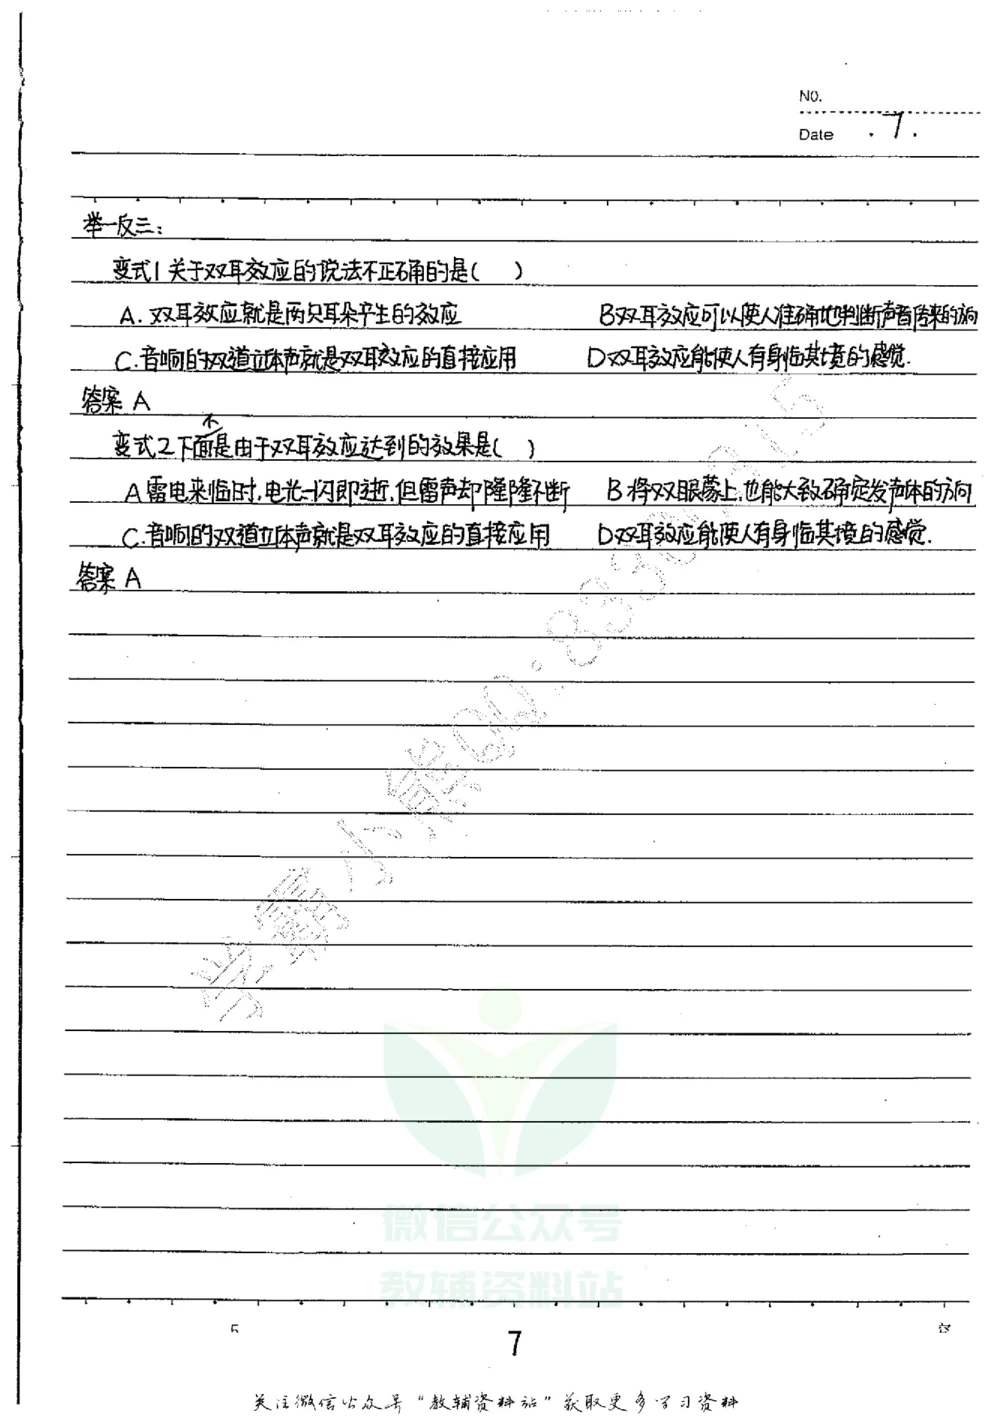 No.
Date . 7 .
举一反三:
变式1 关于双耳效应的说法不正确的是( )
A. 双耳效应就是两只耳朵产生的效应 B 双耳效应可以使人准确地判断声音传来的方向
C. 音响的双道立体声就是双耳效应的直接应用 D 双耳效应能使人有身临其境的感觉.
答案 A
不
变式2 下面是由于双耳效应达到的效果是( )
A 雷电来临时,电光一闪即逝,但雷声却隆隆不断 B 将双眼蒙上,也能大致确定发声体的方向
C. 音响的双道立体声就是双耳效应的直接应用 D 双耳效应能使人有身临其境的感觉.
答案 A
学霸小熊QQ:833
微信公众号
教辅资料站
7
关注微信公众号“教辅资料站”获取更多学习资料